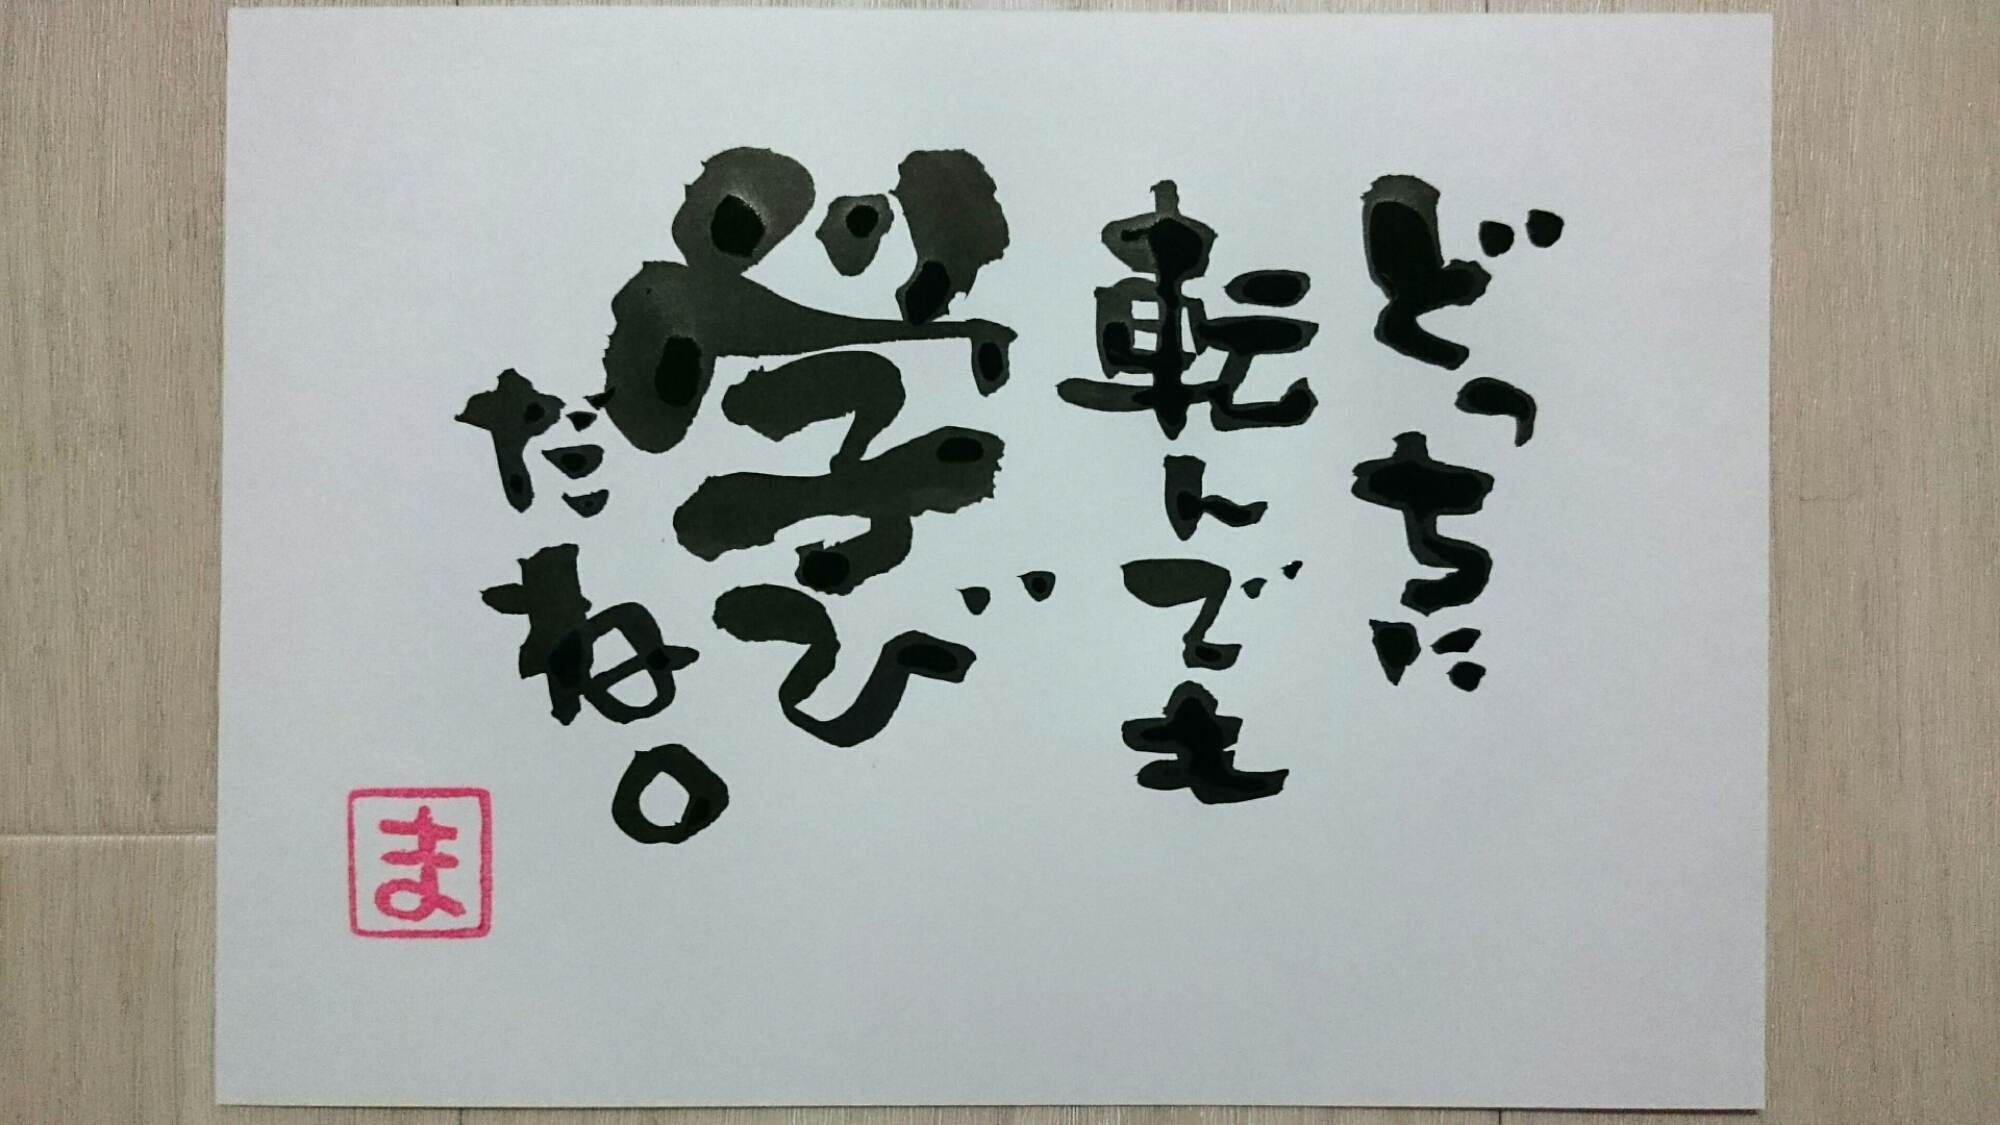 どっちに
転んでも
学び
だね。
ま